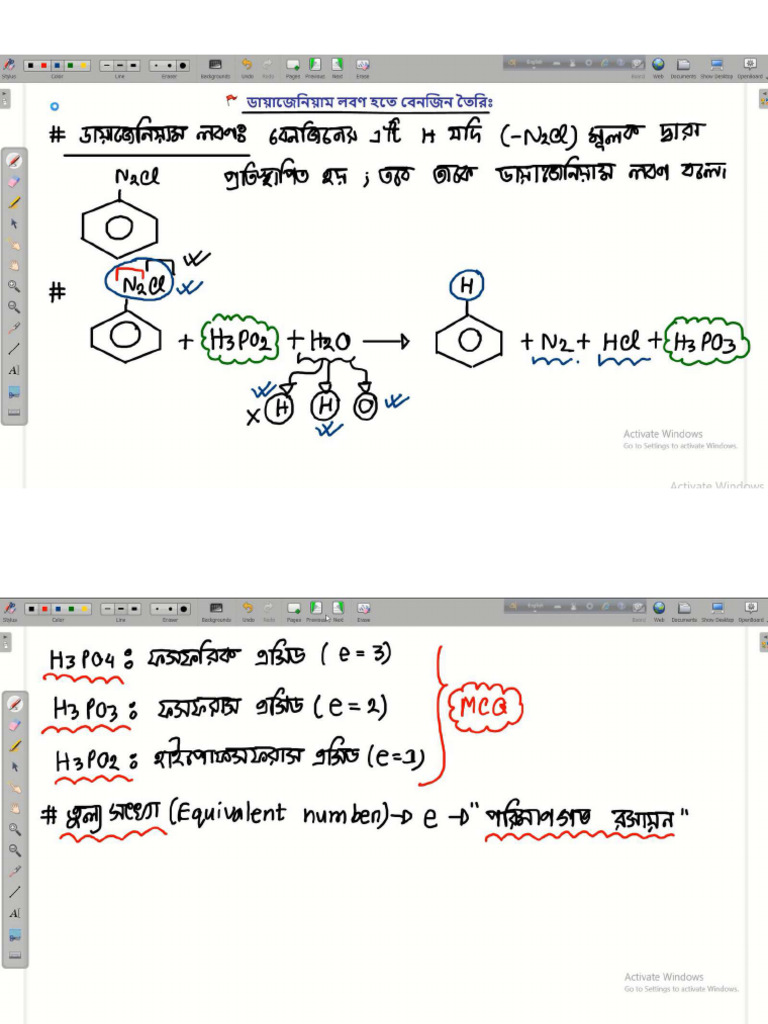 Stylus Color Line Eraser Backgrounds Undo Redo Pages Previous Next Erase Board Web Documents Show Desktop OpenBoard
ডায়াজেনিয়াম লবণ হতে বেনজিন তৈরিঃ
# ডায়াজোনিয়াম লবণঃ বেনজিনের একটি H যদি (-N2Cl) মূলক দ্বারা
প্রতিস্থাপিত হয় ; তবে তাকে ডায়াজোনিয়াম লবণ বলে।
N2Cl
# N2Cl H
+ H3PO2 + H2O → + N2 + HCl + H3PO3
X H H O
Activate Windows
Go to Settings to activate Windows.
Activate Windows
Stylus Color Line Eraser Backgrounds Undo Redo Pages Previous Next Erase Board Web Documents Show Desktop OpenBoard
H3PO4 : ফসফরিক এসিড (e = 3)
H3PO3 : ফসফরাস এসিড (e = 2) MCQ
H3PO2 : হাইপোফসফরাস এসিড (e=1)
# তুল্য সংখ্যা (Equivalent number) → e → "পরিমাণগত রসায়ন"
Activate Windows
Go to Settings to activate Windows.